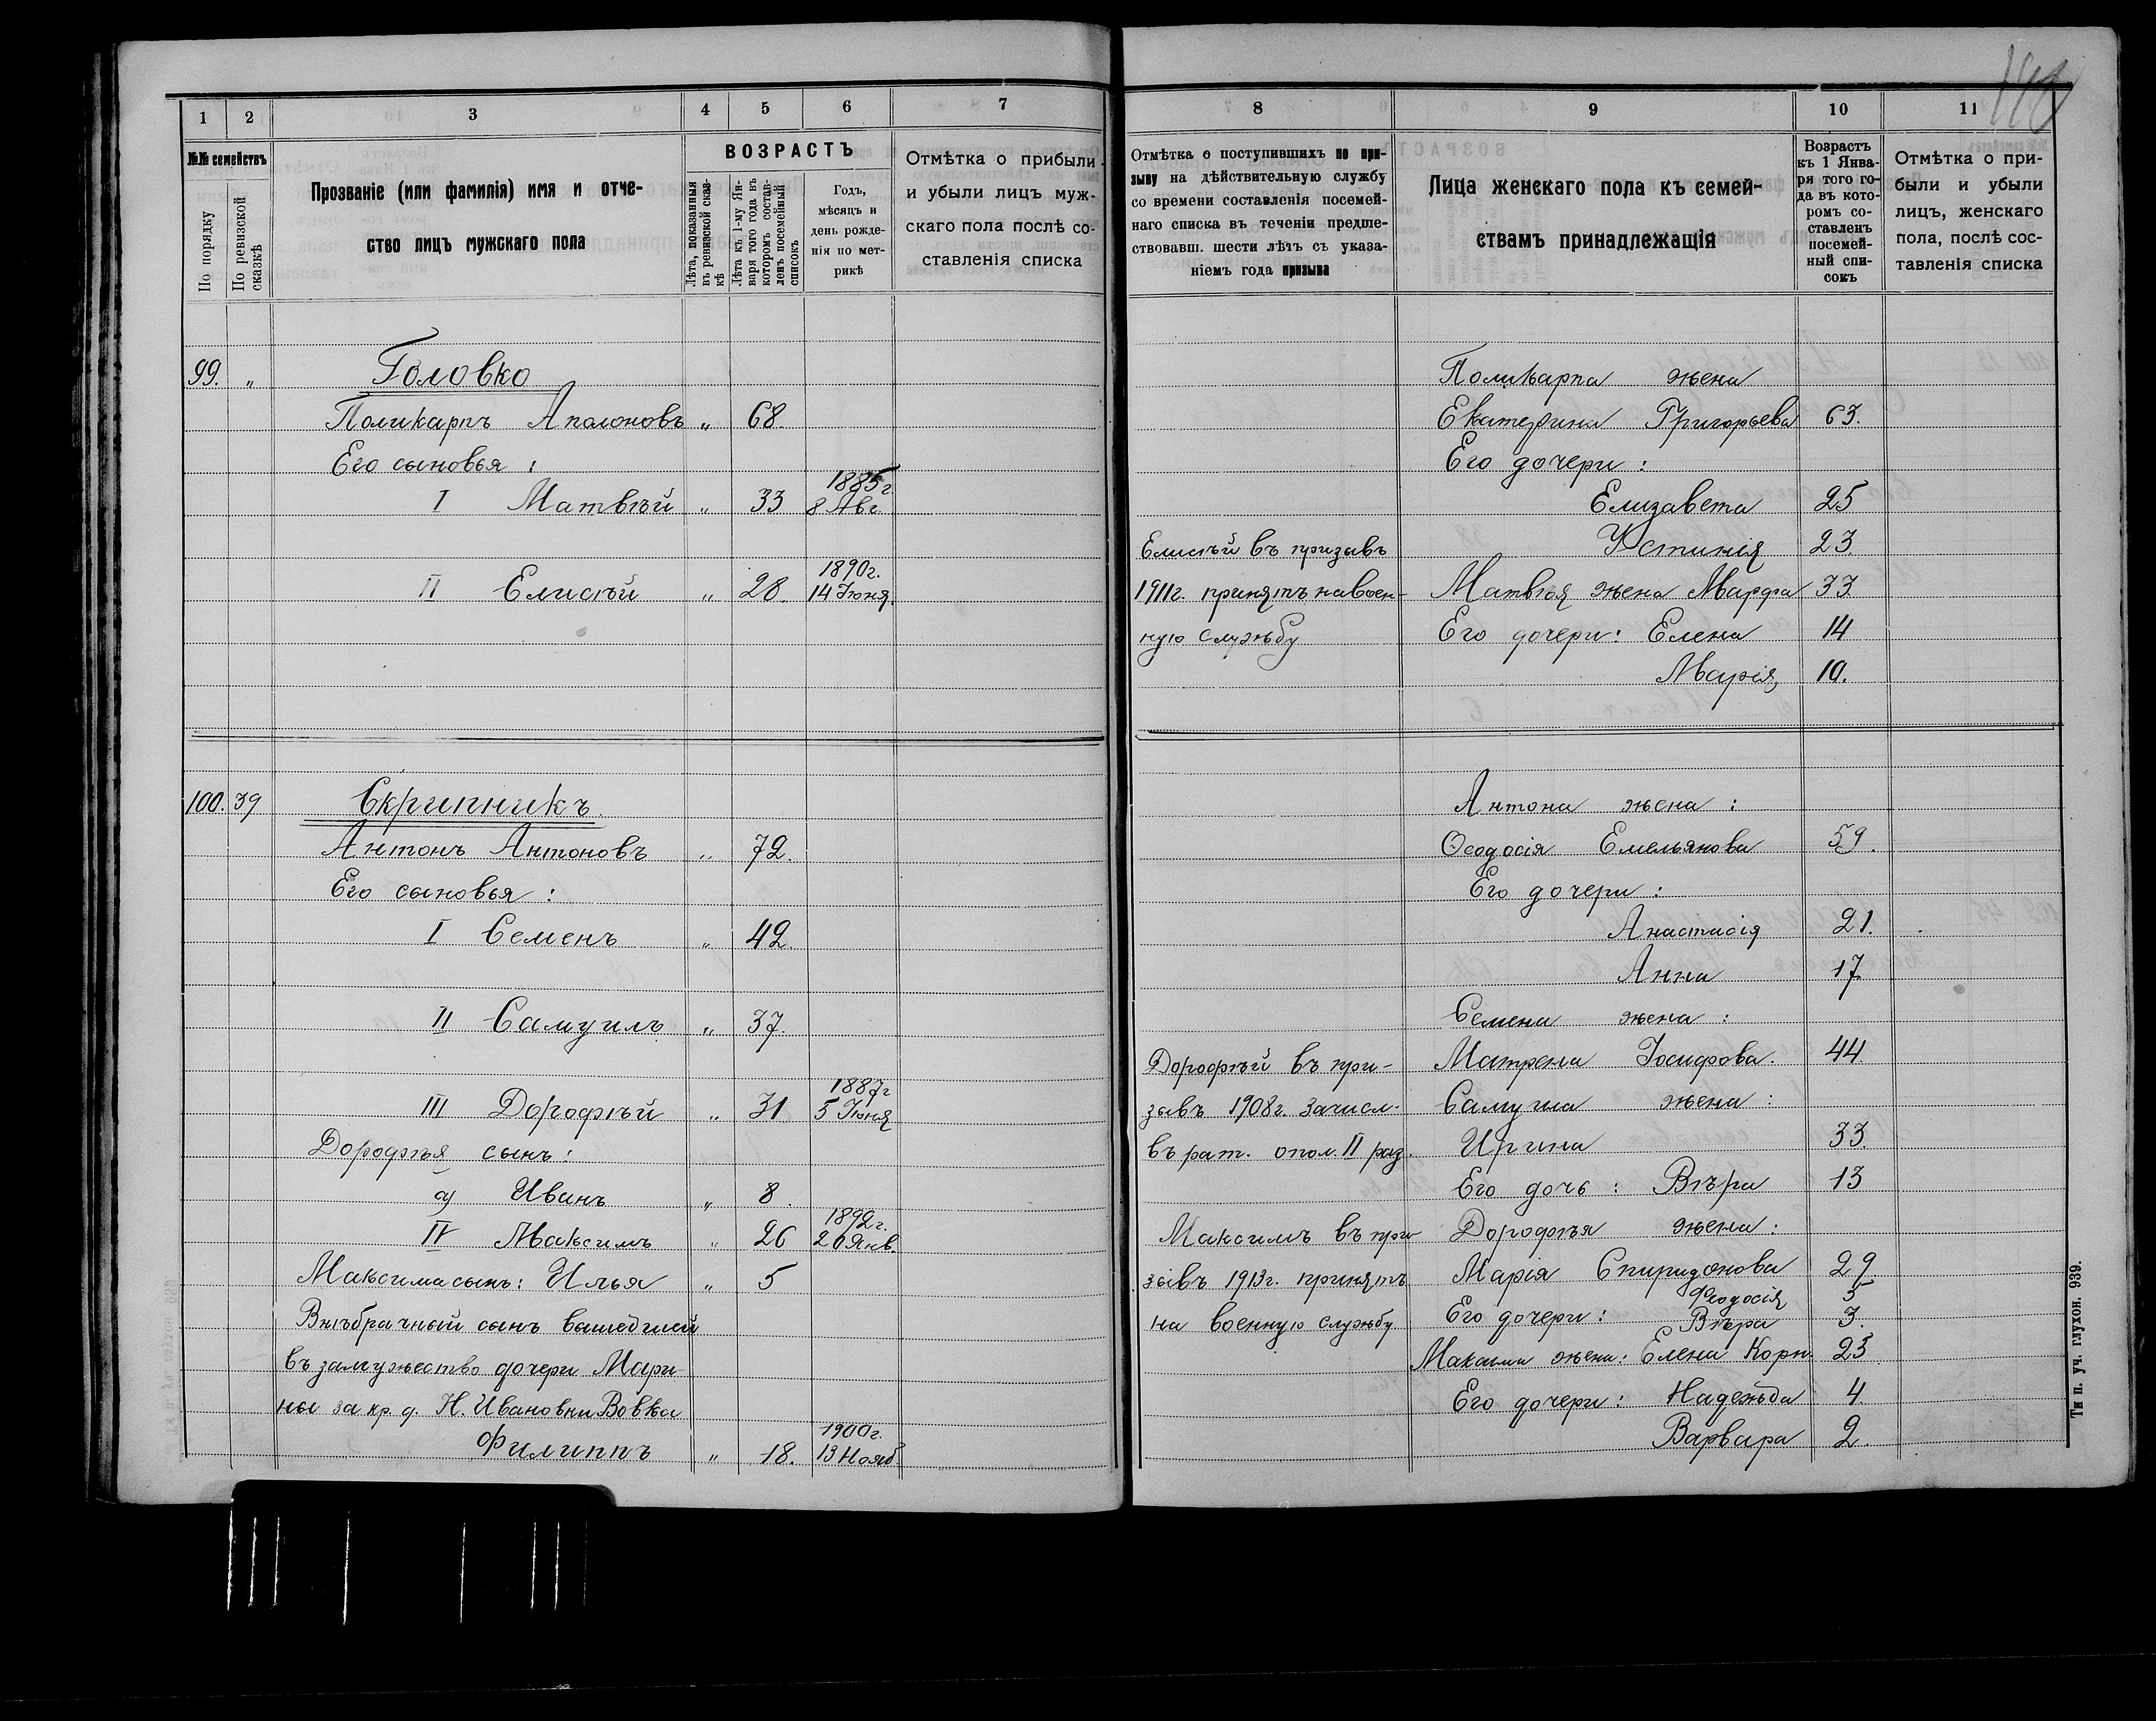 1 2 3 4 5 6 7
№№ семействъ
По порядку
По ревизской сказкѣ
Прозваніе (или фамилія) имя и отче-
ство лицъ мужскаго пола
ВОЗРАСТЪ
Лѣта, показанныя въ ревизской сказ-кѣ
Лѣта къ 1-му Ян-варя того года въ которомъ состав-ленъ посемейный списокъ
Годъ,
мѣсяцъ и
день рожде-
нія по мет-
рикѣ
Отмѣтка о прибыли
и убыли лицъ муж-
скаго пола послѣ со-
ставленія списка
99. " Головко
Поликарпъ Аполоновъ " 68.
Его сыновья :
I Матвѣй " 33 1885г. 8 Авг.
II Елисѣй " 28. 1890г. 14 Іюня.
100. 39 Скрипникъ
Антонъ Антоновъ " 72.
Его сыновья :
I Семенъ " 42
II Самуилъ " 37.
III Дорофѣй " 31 1887г 5 Іюня
Дорофѣя сынъ :
а) Иванъ " 8.
IV Максимъ " 26 1892г. 20 Янв.
Максима сынъ : Илья " 5
Внѣбрачный сынъ вышедшей
въ замужество дочери Мари
ны за кр. д. Н. Ивановки Вовка
Филиппъ " 18. 1900г. 13 Нояб.
8 9 10 11
Отмѣтка о поступившихъ по при-
зыву на дѣйствительную службу
со времени составленія посемей-
наго списка въ теченіи предше-
ствовавш. шести лѣтъ съ указа-
ніемъ года призыва
Лица женскаго пола къ семей-
ствамъ принадлежащія
Возрастъ
къ 1 Янва-
ря того го-
да въ кото-
ромъ со-
ставленъ
посемей-
ный спи-
сокъ
Отмѣтка о при-
были и убыли
лицъ, женскаго
пола, послѣ сос-
тавленія списка
Поликарпа жена
Екатерина Григорьева 63.
Его дочери :
Елизавета 25
Елисѣй въ призывъ Устинія 23.
1911г. принятъ на воен- Матвѣя жена Марфа 33
ную службу Его дочери : Елена 14
Марія 10.
Антона жена :
Ѳеодосія Емельянова 59.
Его дочери :
Анастасія 21.
Анна 17
Семена жена :
Дорофѣй въ при- Матрена Іосифова. 44.
зывъ 1908г. зачисл. Самуила жена :
въ рат. опол. II раз. Ирина 33.
Его дочь : Вѣра 13
Максимъ въ при Дорофѣя жена :
зывъ 1913г. принятъ Марія Спиридонова 29
Феодосія 5
на военную службу Его дочери : Вѣра 3.
Максима жена : Елена Корн. 23
Его дочери : Надежда 4.
Варвара 2.
Тип. уч. глухон. 939.